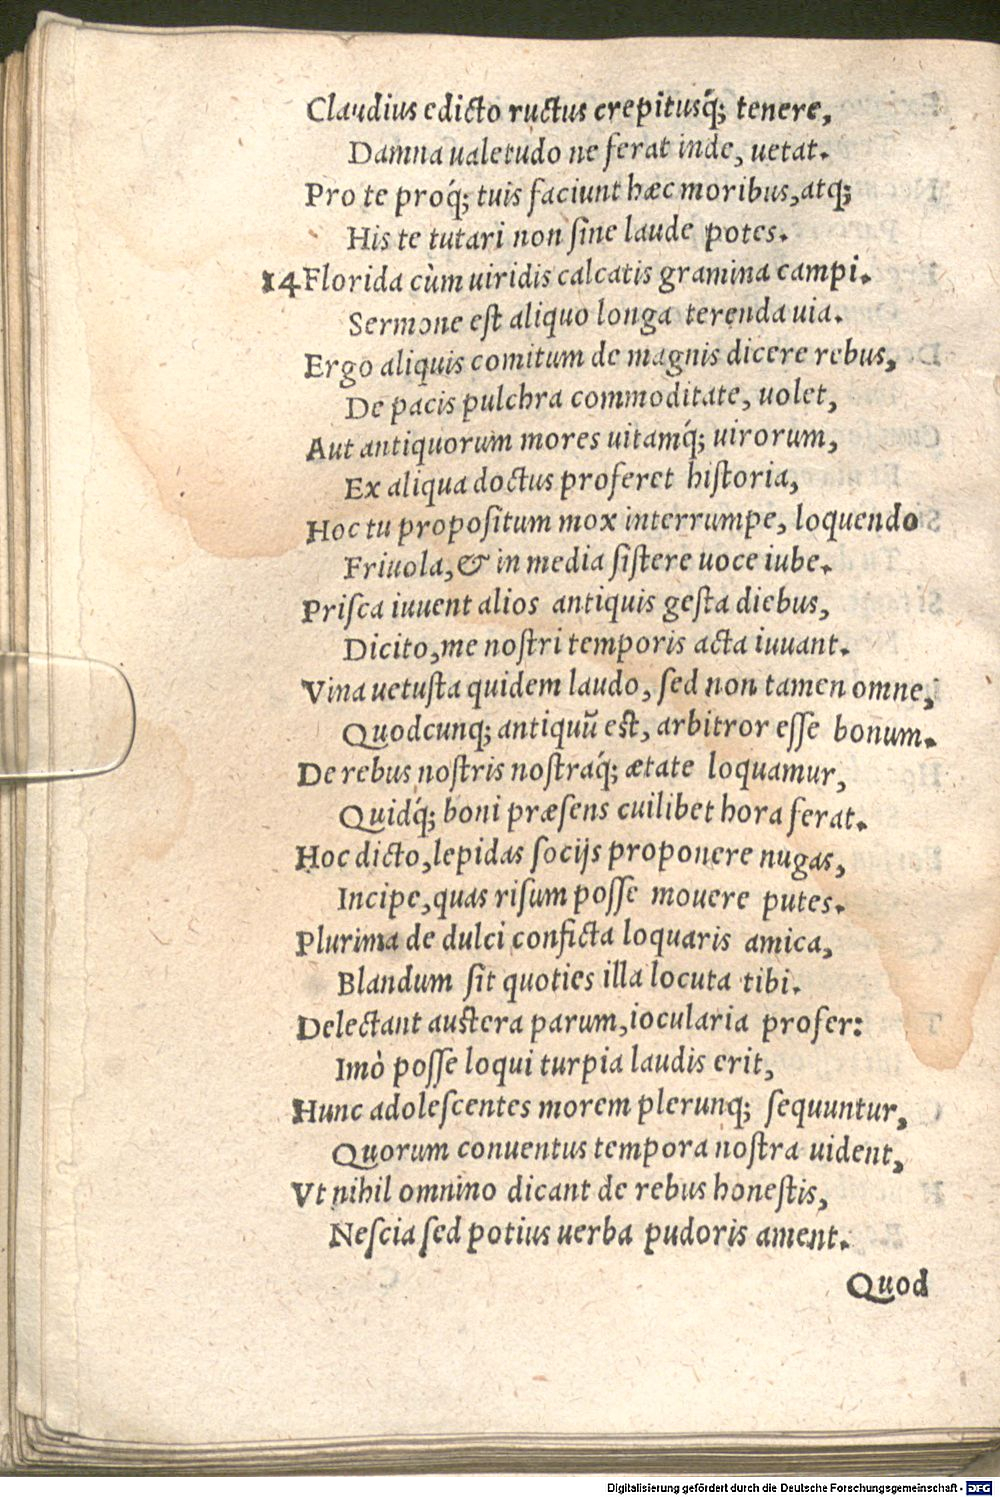 Claudius edicto ructus crepitusq́; tenere,
Damna ualetudo ne ferat inde, uetat.
Pro te proq́; tuis faciunt hæc moribus, atq;
His te tutari non ſine laude potes.
14 Florida cùm uiridis calcatis gramina campi.
Sermone eſt aliquo longa terenda uia.
Ergo aliquis comitum de magnis dicere rebus,
De pacis pulchra commoditate, uolet,
Aut antiquorum mores uitamq́; uirorum,
Ex aliqua doctus proferet hiſtoria,
Hoc tu propoſitum mox interrumpe, loquendo
Friuola, & in media ſiſtere uoce iube.
Priſca iuuent alios antiquis geſta diebus,
Dicito, me noſtri temporis acta iuuant.
Vina uetuſta quidem laudo, ſed non tamen omne,
Quodcunq; antiquũ eſt, arbitror eſſe bonum.
De rebus noſtris noſtraq́; ætate loquamur,
Quidq́; boni præſens cuilibet hora ferat.
Hoc dicto, lepidas ſocijs proponere nugas,
Incipe, quas riſum poſſe mouere putes.
Plurima de dulci conficta loquaris amica,
Blandum ſit quoties illa locuta tibi.
Delectant auſtera parum, iocularia profer:
Imò poſſe loqui turpia laudis erit,
Hunc adoleſcentes morem plerunq; ſequuntur,
Quorum conuentus tempora noſtra uident,
Vt nihil omnino dicant de rebus honeſtis,
Neſcia ſed potius uerba pudoris ament.
Quod
Digitalisierung gefördert durch die Deutsche Forschungsgemeinschaft - DFG